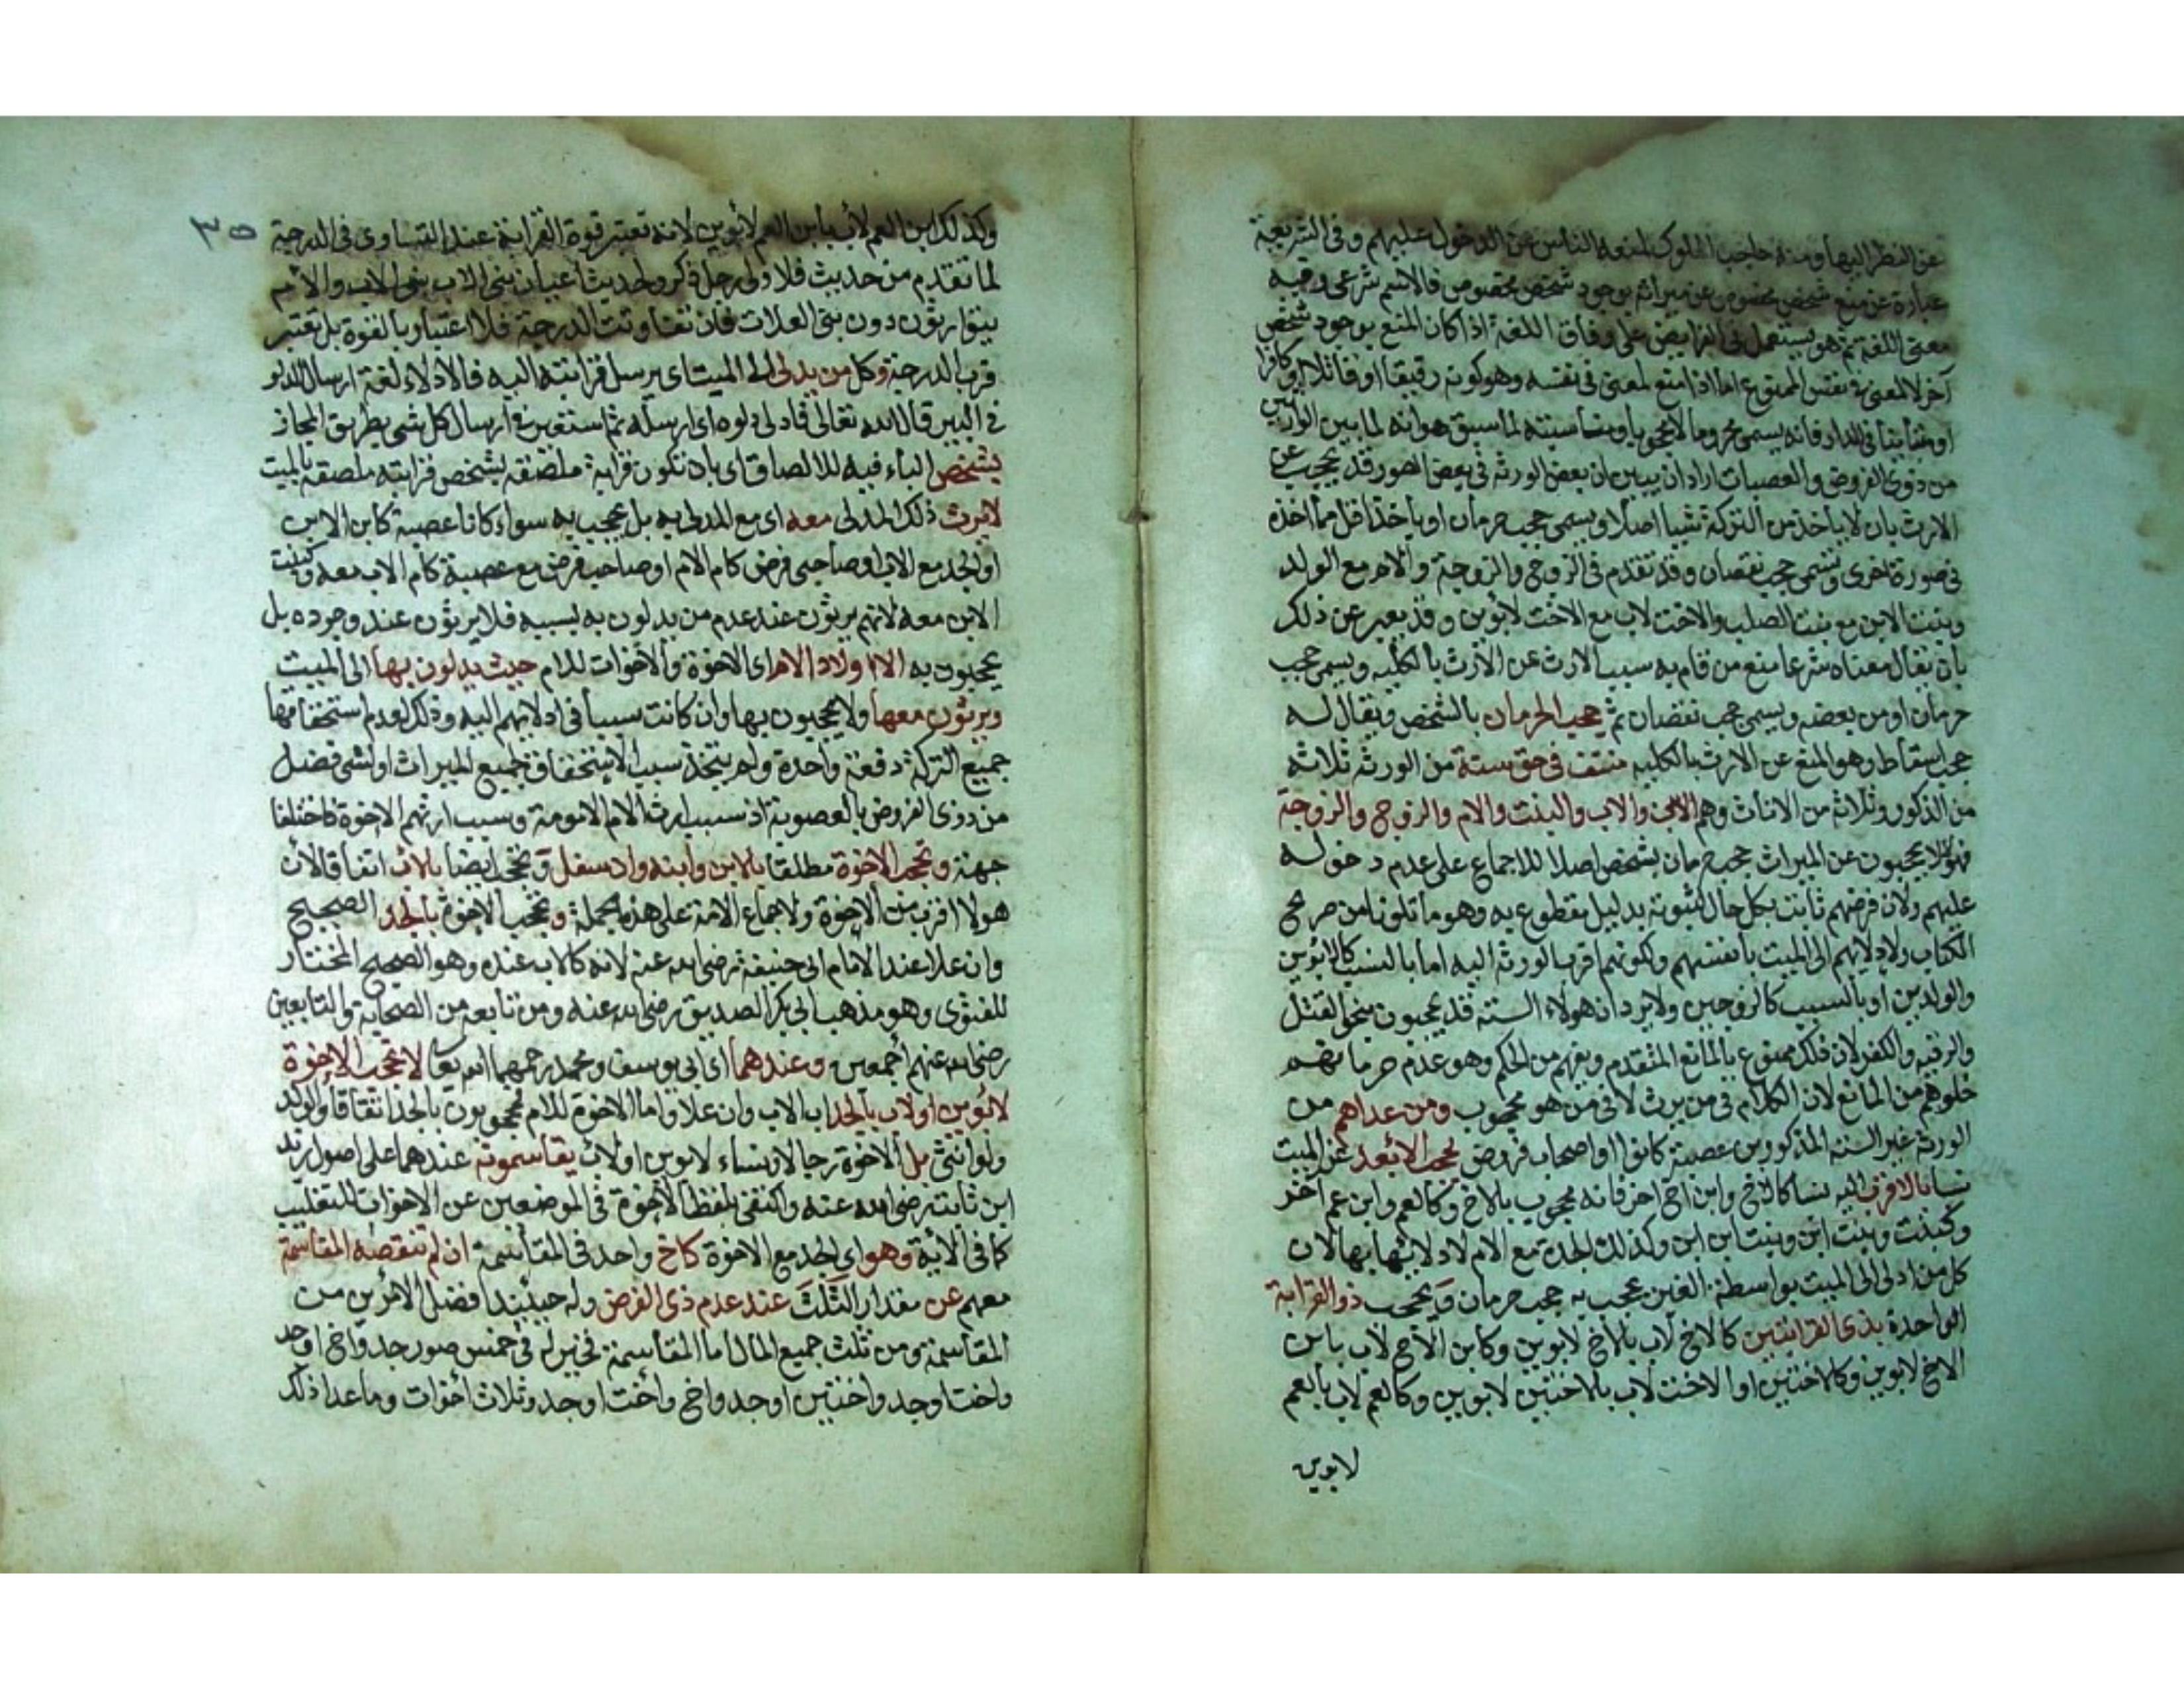 عن النظر اليها ومنه حاجب الملوك لمنعه الناس عن الدخول عليهم وفي الشريعة
عبارة عن منع شخص مخصوص عن ميراثه بوجود شخص مخصوص فالاسم شرعي وفيه
معنى اللغة ثم هو يستعمل في الفرايض على وفاق اللغة اذا كان المنع بوجود شخص
آخر لا لمعنى في نفس الممنوع اما اذا منع لمعنى في نفسه وهو كونه رقيقا او قاتلا او كافرا
او متباينا في الدار فانه يسمى محروما لا محجوبا ومناسبته لما سبق هو انه لما بين الوارثين
من ذوي الفروض والعصبات اراد ان يبين ان بعض الورثة في بعض الصور قد يحجب عن
الارث بان لا ياخذ من التركة شيا اصلا ويسمى حجب حرمان او ياخذ اقل مما اخذه
في صورة اخرى ويسمى حجب نقصان وقد تقدم في الزوج والزوجة والام مع الولد
وبنت الابن مع بنت الصلب والاخت لاب مع الاخت لابوين وقد يعبر عن ذلك
بان يقال معناه شرعا منع من قام به سبب الارث عن الارث بالكليه ويسمى حجب
حرمان او من بعضه ويسمى حجب نقصان ثم حجب الحرمان بالشخص ويقال له
حجب اسقاط وهو المنع عن الارث بالكليه منتف في حق ستة من الورثه ثلاثه
من الذكور وثلاثه من الاناث وهم الابن والاب والبنت والام والزوج والزوجة
فهؤلا يحجبون عن الميراث حجب حرمان بشخص اصلا للاجماع على عدم دخوله
عليهم ولان فرضهم ثابت بكل حال لثبوته بدليل مقطوع به وهو ما تلونا من صريح
الكتاب ولادلايهم الى الميت بانفسهم ولكونهم اقرب الورثه اليه اما بالنسب كالابوين
والولدين او بالسبب كالزوجين ولا يرد ان هولاء الستة قد يحجبون بنحو القتل
والرقيه والكفر لان ذلك ممنوع بالمانع المتقدم ويفهم من الحكم وهو عدم حرمانهم
خلوهم من المانع لان الكلام في من يرث لا في من هو محجوب ومن عداهم من
الورثة غير الستة المذكورين عصبة كانوا او اصحاب فروض يحجب الابعد عن الميت
نسبا بالاقرب اليه نسبا كالاخ وابن اخ اخر فانه محجوب بالاخ وكالعم وابن عم آخر
وكبنت وبنت ابن وبنت ابن ابن وكذلك الجدة مع الام لادلائها بها لان
كل من ادلى الى الميت بواسطة الغير يحجب به حجب حرمان ويحجب ذو القرابة
الواحدة بذي القرابتين كالاخ لاب بالاخ لابوين وكابن الاخ لاب بابن
الاخ لابوين وكالاختين او الاخت لاب بالاختين لابوين وكالعم لاب بالعم
لابوين
٣٥
وكذلك ابن العم لاب بابن العم لابوين لانه تعتبر قوة القرابة عند التساوي في الدرجة
لما تقدم من حديث فلاولى رجل ذكر ولحديث اعيان بني الاب بني الاب والام
يتوارثون دون بني العلات فان تفاوتت الدرجة فلا اعتبار بالقوة بل تعتبر
قرب الدرجة وكل من يدلى الى الميت اي يرسل قرابته اليه فالادلاء لغة ارسال الدلو
في البير قال الله تعالى فادلى دلوه اي ارسله ثم استعير في ارسال كل شي بطريق المجاز
بشخص الباء فيه للالصاق اي بان تكون قرابة ملصقه بشخص قرابته ملصقه بالميت
لا يرث ذلك المدلى معه اي مع المدلى به بل يحجب به سواء كانا عصبة كابن الابن
او الجد مع الاب او صاحبي فرض كام الام او صاحب فرض مع عصبة كام الاب معه وكبنت
الابن معه لانهم يرثون عند عدم من يدلون به بسببه فلا يرثون عند وجوده بل
يحجبون به الا اولاد الام اي الاخوة والاخوات للام حيث يدلون بها الى الميت
ويرثون معها ولا يحجبون بها وان كانت سببا في ادلايهم اليه وذلك لعدم استحقاقها
جميع التركة دفعة واحدة ولم يتحد سبب الاستحقاق لجميع الميراث او لشي فضل
من ذوي الفروض بالعصوبة اذ سبب ارث الام الامومة وسبب ارثهم الاخوة فاختلفا
جهة وتحجب الاخوة مطلقا بالابن وابنه وان سفل وتحجب ايضا بالاب اتفاقا لان
هولا اقرب من الاخوة ولاجماع الامة على هذه الجملة وتحجب الاخوة بالجد الصحيح
وان علا عند الامام ابي حنيفة رضي الله عنه لانه كالاب عنده وهو الصحيح المختار
للفتوى وهو مذهب ابي بكر الصديق رضي الله عنه ومن تابعه من الصحابة والتابعين
رضي الله عنهم اجمعين وعندهما اي ابي يوسف ومحمد رحمهما الله تعا لا تحجب الاخوة
لابوين او لاب بالجد اب الاب وان علا واما الاخوة للام فمحجوبون بالجد اتفاقا والولد
ولو انثى بل الاخوة رجالا ونساء لابوين او لاب يقاسمونه عندهما على اصول زيد
ابن ثابت رضي الله عنه واكتفى بلفظ الاخوة في الموضعين عن الاخوات للتغليب
كما في الاية وهو اي الجد مع الاخوة كاخ واحد في المقاسمة ان لم تنقصه المقاسمة
معهم عن مقدار الثلث عند عدم ذي الفرض وله حينيذ افضل الامرين من
المقاسمة ومن ثلث جميع المال اما المقاسمة فخير له في خمس صور جد واخ او جد
واخت او جد واختين او جد واخ واخت او جد وثلاث اخوات وما عدا ذلك